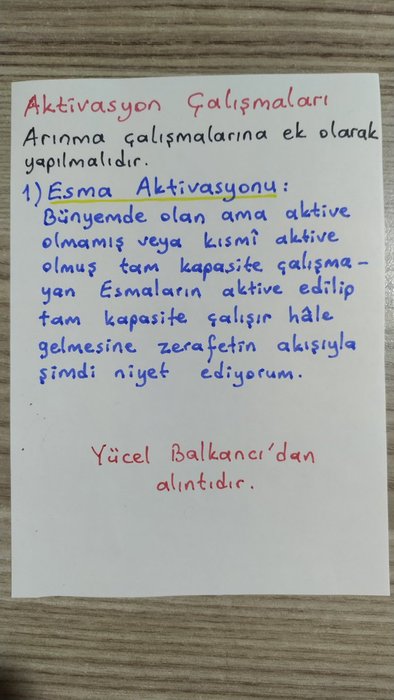 Aktivasyon Çalışmaları
Arınma çalışmalarına ek olarak
yapılmalıdır.
1) Esma Aktivasyonu:
Bünyemde olan ama aktive
olmamış veya kısmî aktive
olmuş tam kapasite çalışma-
yan Esmaların aktive edilip
tam kapasite çalışır hâle
gelmesine zerafetin akışıyla
şimdi niyet ediyorum.
Yücel Balkancı'dan
alıntıdır.